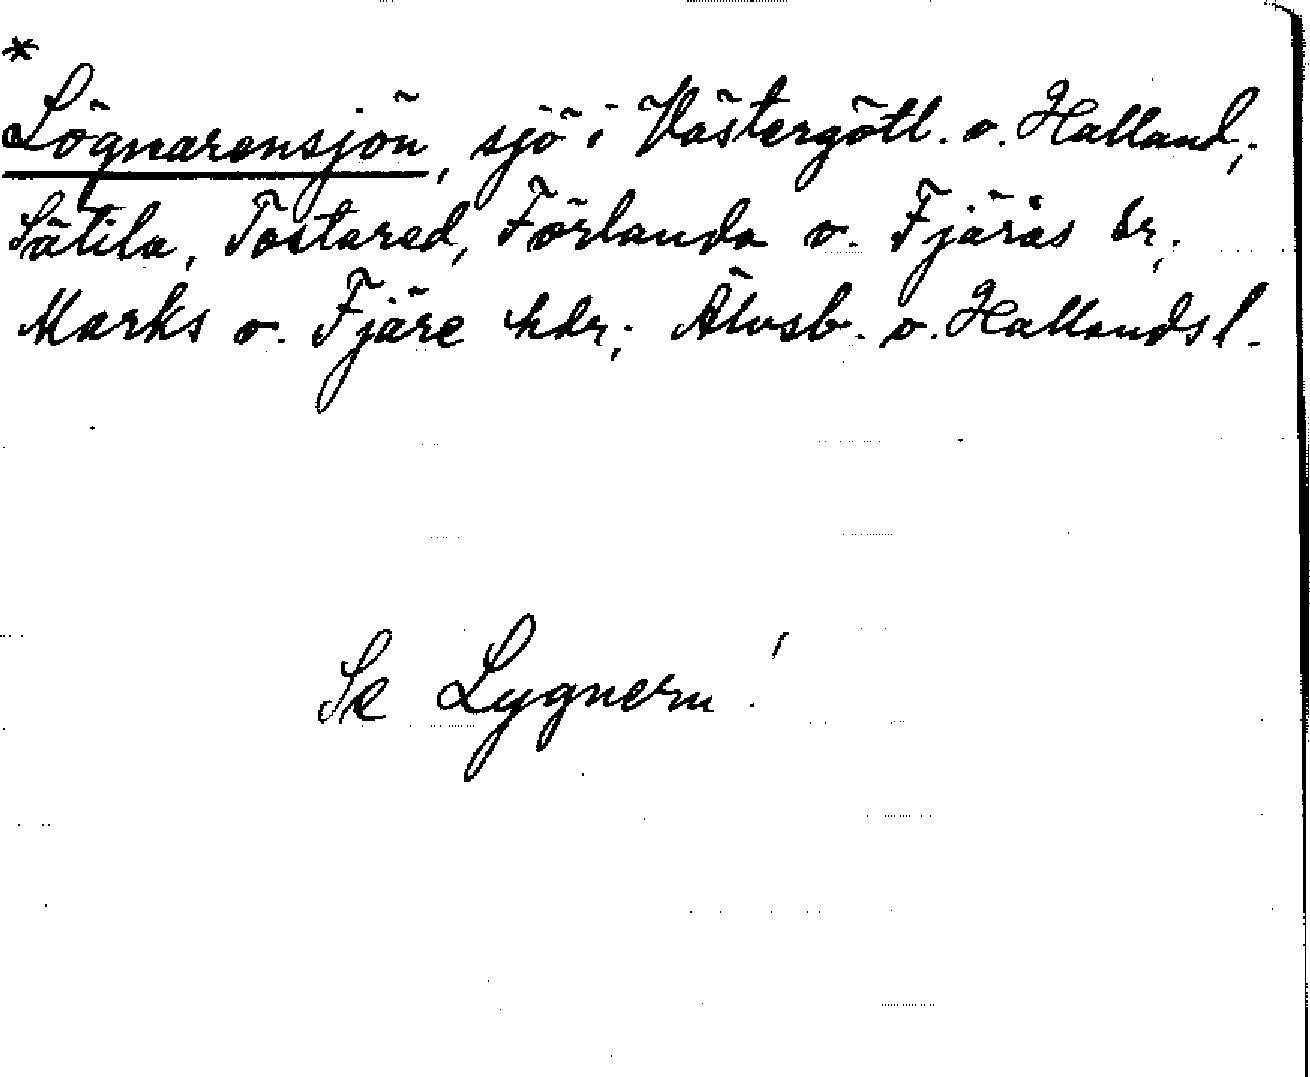 *
Lögnarensjön, sjö i Västergötl. o. Halland;
Sätila, Tostared, Förlanda o. Fjärås sr;
Marks o. Fjäre hdr; Älvsb. o. Hallands l.
Se Lygnern!